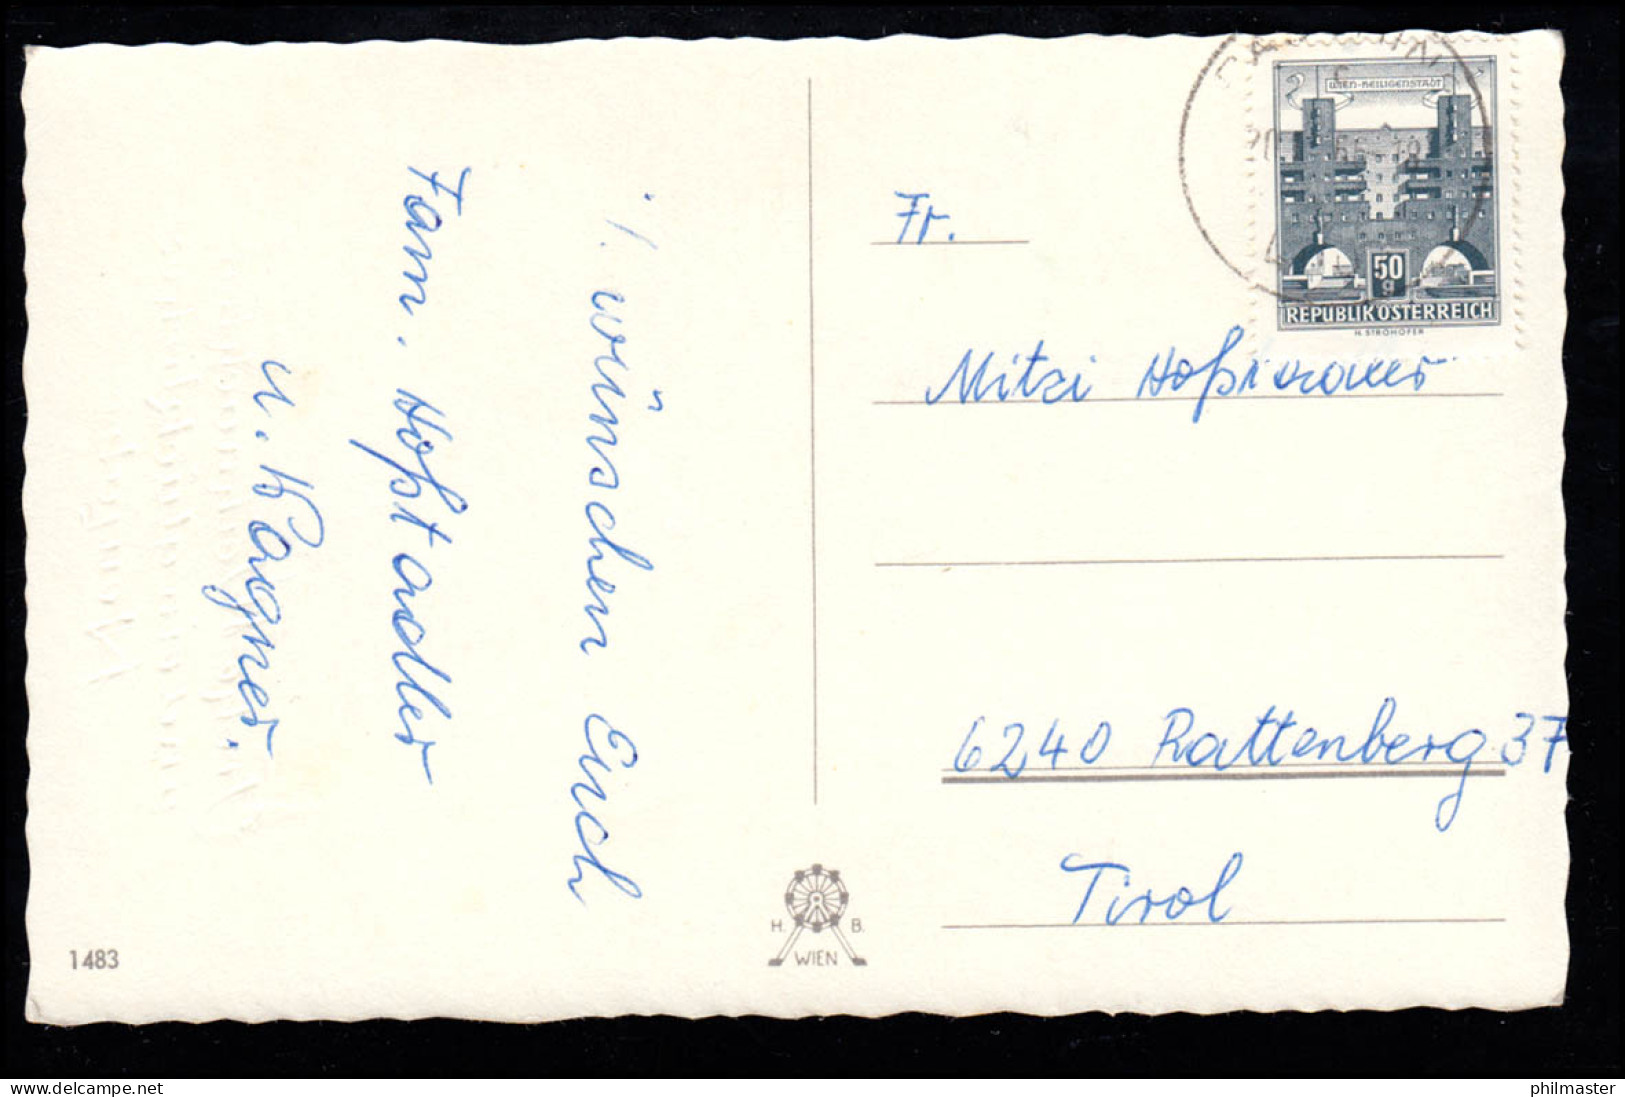 ! wünschen Euch
Fam. Hoßtadler
u. Wagner.
1483
H. B.
WIEN
2
WIEN-HEILIGENSTADT
50
g
REPUBLIK ÖSTERREICH
H. STROHOFER
Fr.
Mitzi
6240 Rattenberg 37
Tirol
delcampe.net
philmaster